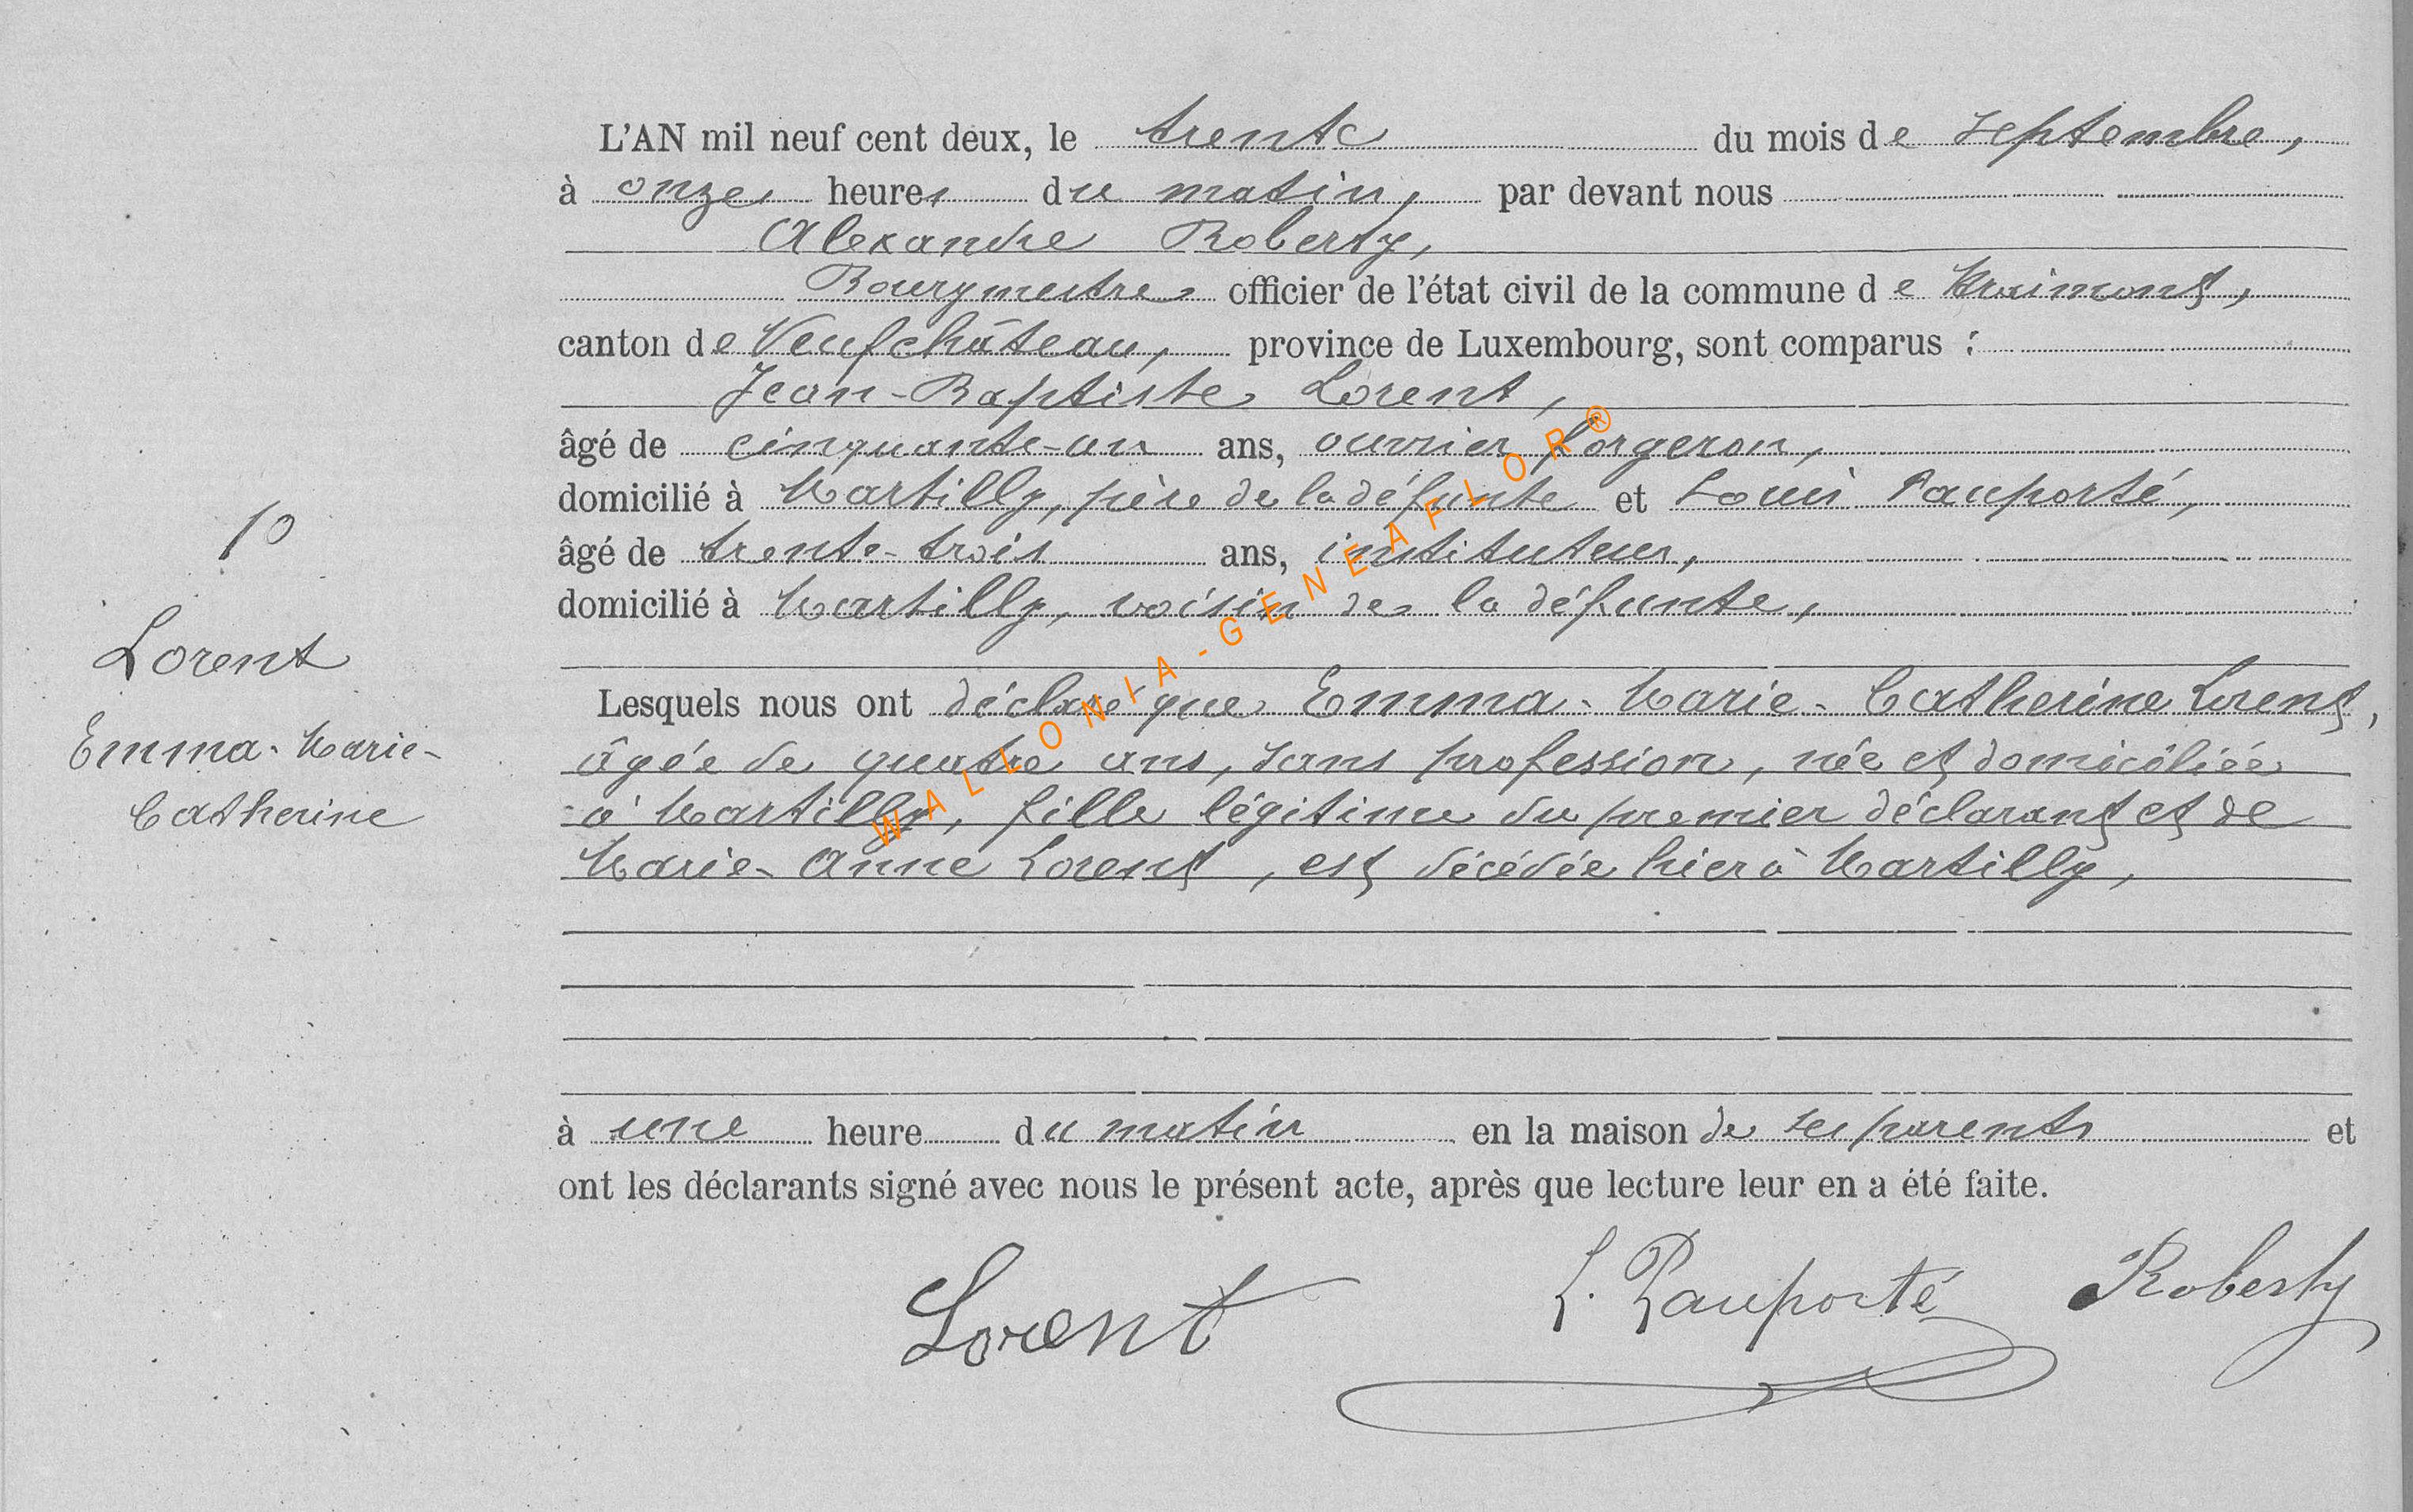 L'AN mil neuf cent deux, le trente du mois de septembre,
à onze heures du matin, par devant nous
Alexandre Roberty,
Bourgmestre officier de l'état civil de la commune de Straimont,
canton de Neufchâteau, province de Luxembourg, sont comparus :
Jean-Baptiste Lorent,
âgé de cinquante-un ans, ouvrier forgeron,
domicilié à Martilly, père de la défunte et Louis Pauporté,
âgé de trente-trois ans, instituteur,
domicilié à Martilly, voisin de la défunte,
10
Lorent
Emma-Marie-
Catherine
Lesquels nous ont déclaré que Emma-Marie-Catherine Lorent,
âgée de quatre ans, sans profession, née et domiciliée
à Martilly, fille légitime du premier déclarant et de
Marie-Anne Lorent, est décédée hier à Martilly,
à une heure du matin en la maison de ses parents et
ont les déclarants signé avec nous le présent acte, après que lecture leur en a été faite.
Lorent L. Pauporté Roberty
WALLONIA-GENEAFLOR®